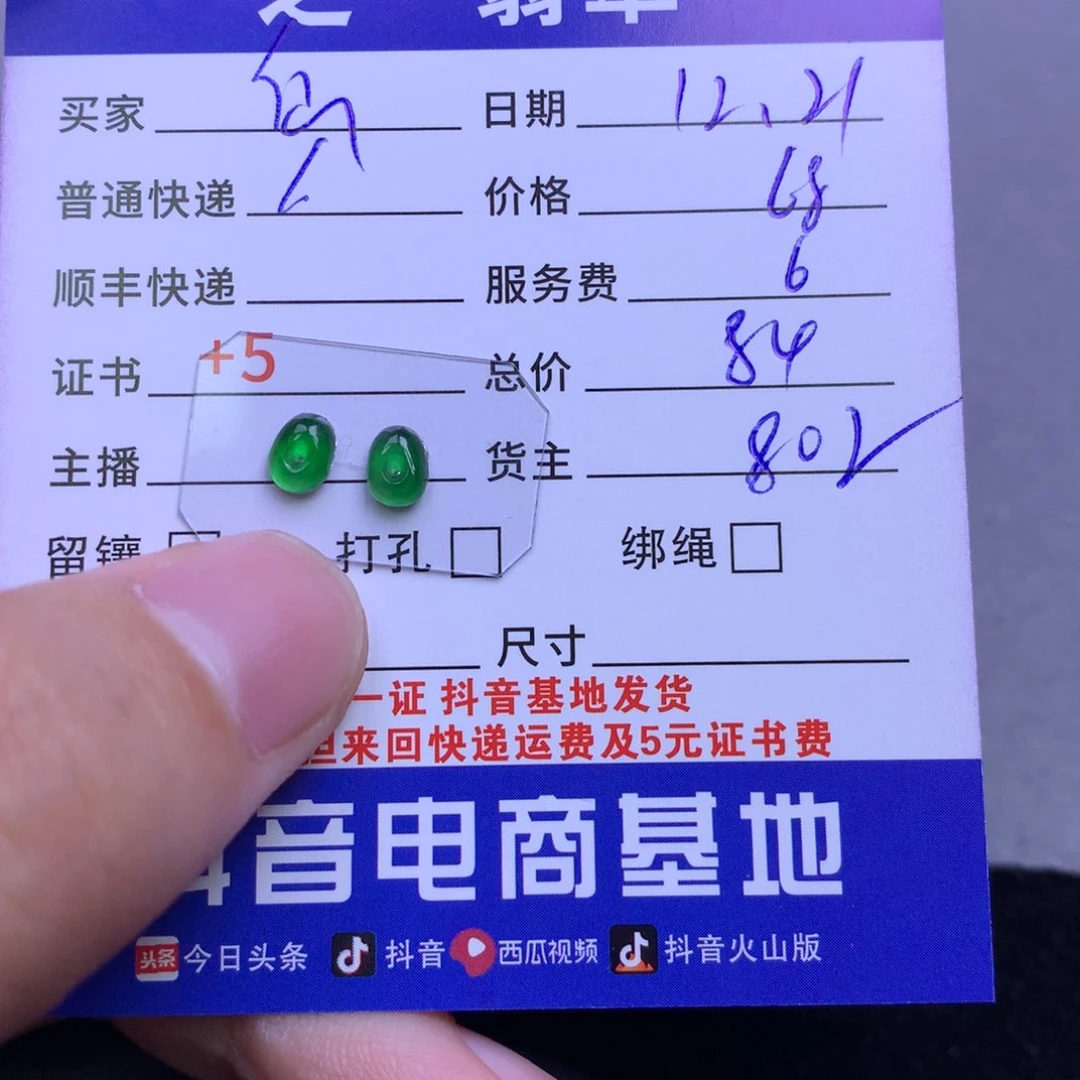 翡翠
买家 日期 12.21
普通快递 价格 68
顺丰快递 服务费 6
证书 +5 总价 84
主播 货主 802
留镶 打孔 绑绳
尺寸
一证 抖音基地发货
担来回快递运费及5元证书费
抖音电商基地
头条 今日头条 抖音 西瓜视频 抖音火山版